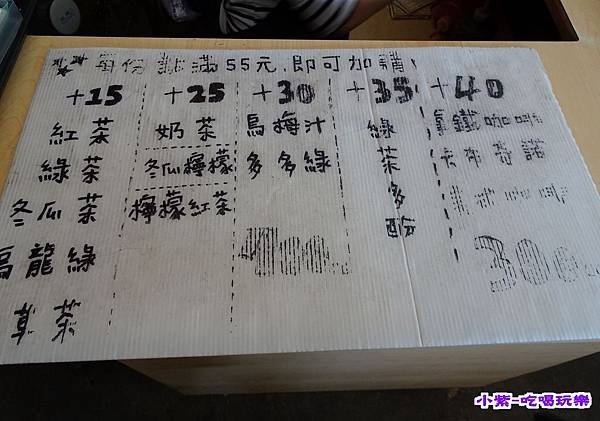 每份 點滿55元,即可加購
+15 +25 +30 +35 +40
紅茶
綠茶
冬瓜茶
烏龍綠
草茶
奶茶
冬瓜檸檬
檸檬紅茶
烏梅汁
多多綠
400
綠茶多酚
拿鐵咖啡
卡布奇諾
300
小紫-吃喝玩樂